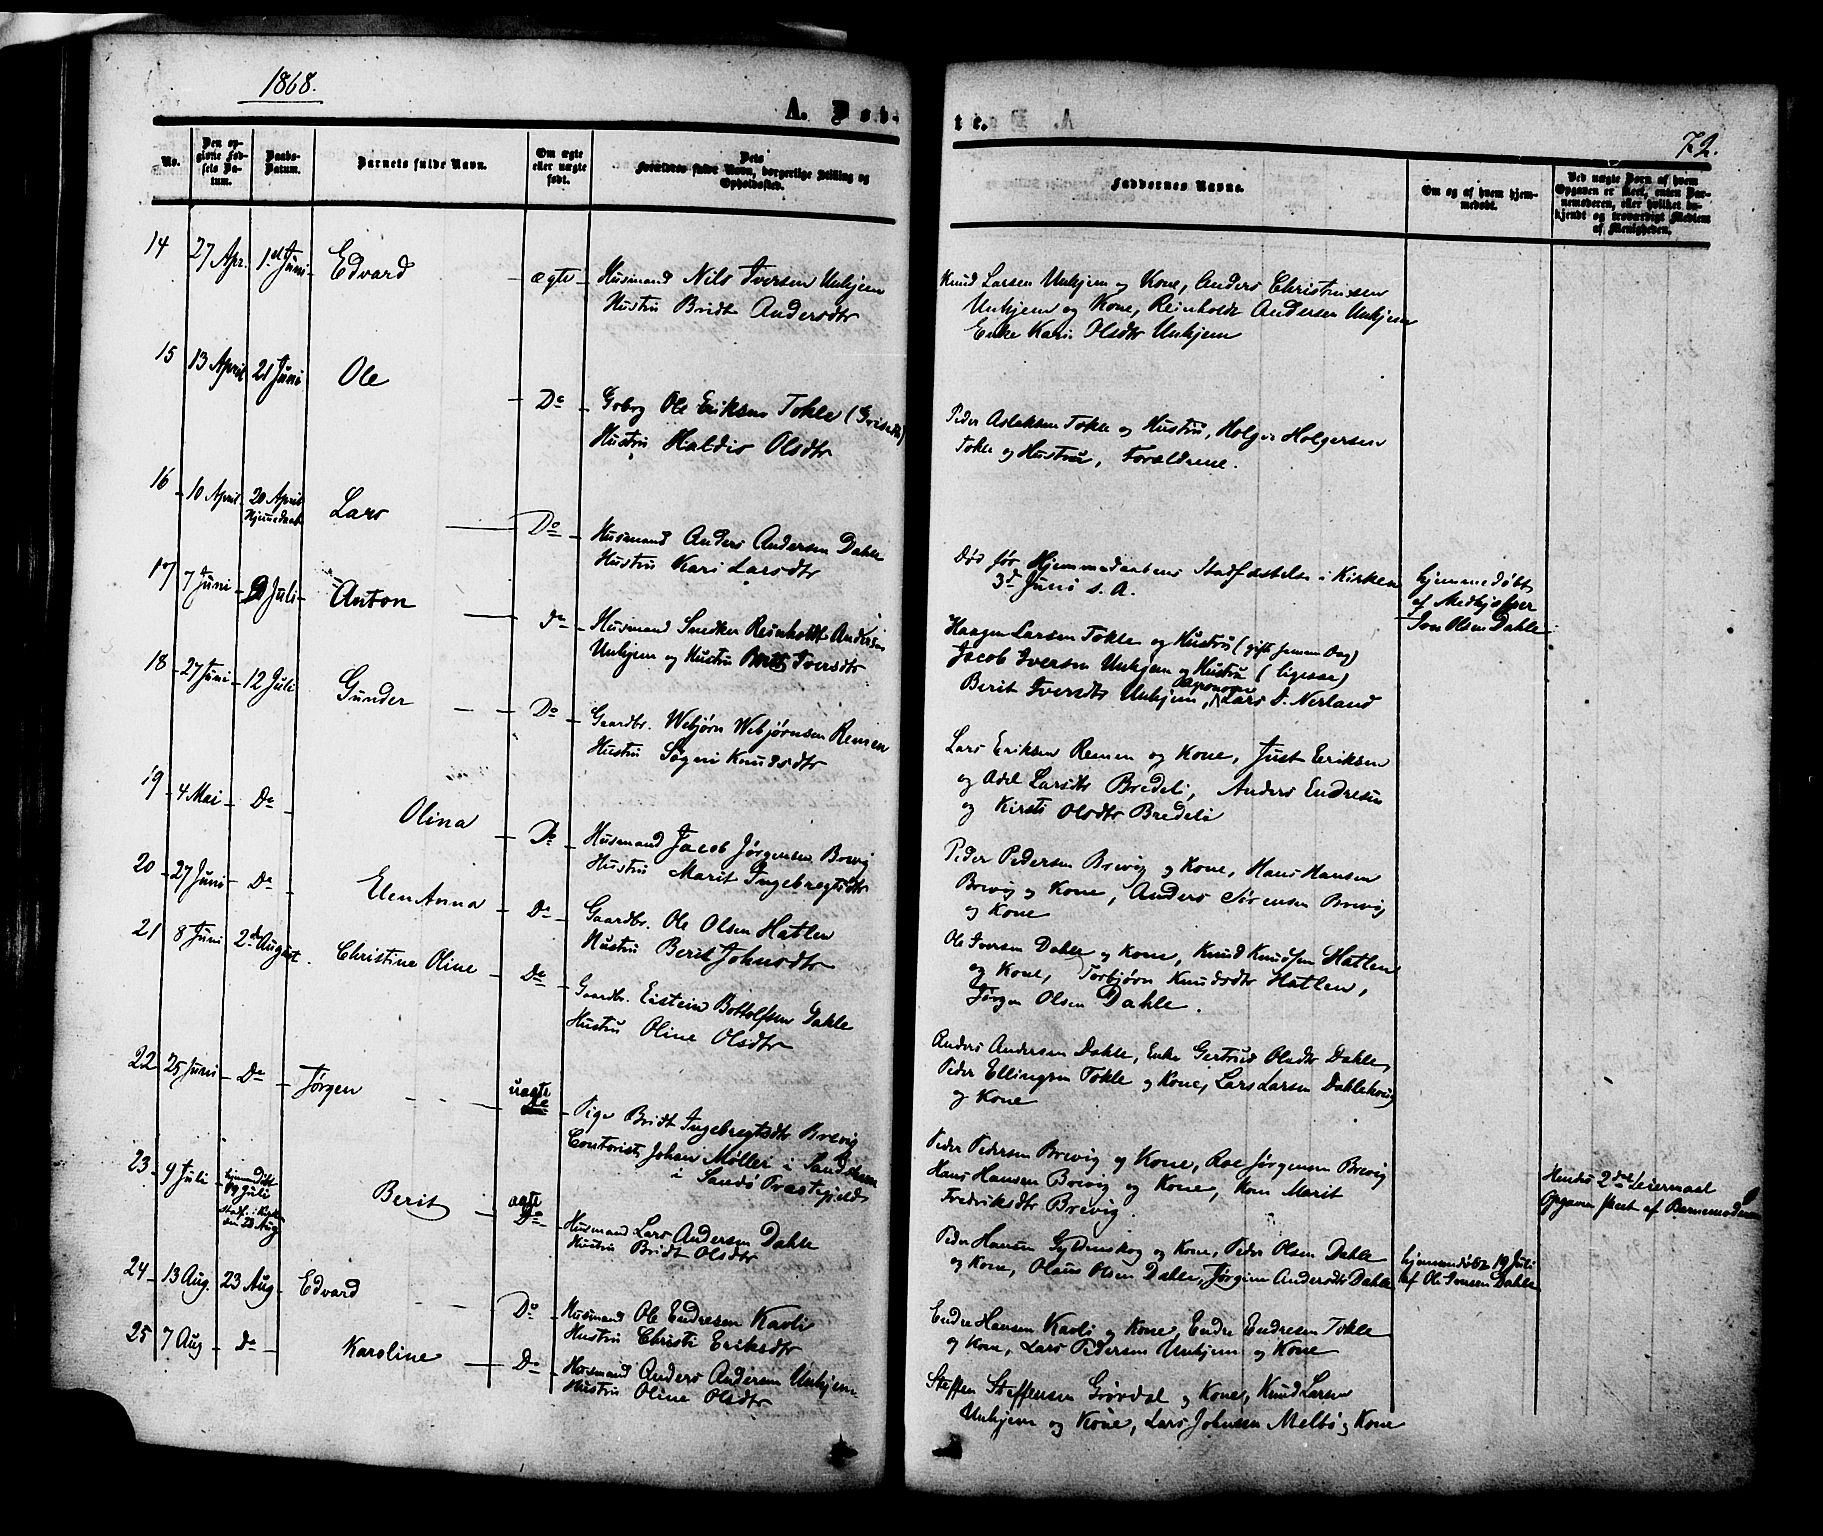 1868.
A. Føb-
te.
72.
No.
Den opgivne Fødsels Datum.
Daabs-Datum.
Barnets fulde Navn.
Om ægte eller uægte født.
Forældres fulde Navn, borgerlige Stilling og Opholdssted.
Faddernes Navne.
Om og af hvem hjemmedøbt.
Ved uægte Børn af hvem Opgaven er skeet, enten Barnemoderen, eller hvilket bekjendt og troværdigt Medlem af Menigheden.
14 27 Apr. 1ste Juni Edvard ægte Husmand Nils Iversen Unhjem
Hustru Bridt Andersdtr
Knud Larsen Unhjem og Kone, Anders Christensen
Unhjem og Kone, Reinholdt Andersen Unhjem
Enke Kari Olsdtr Unhjem
15 13 April 21 Juni Ole Do Gbrg Ole Eriksen Tokle
Hustru Haldis Olsdtr
Peder Aslaksen Tokle og Hustru, Holger Holgersen
Tokle og Hustru, Forældrene.
16 10 April 20 April Hjemmedaab Lars Do Husmand Anders Andersen Dahle
Hustru Kari Larsdtr
Død før Hjemmedaabens Stadfæstelse i Kirken
3d Juni s. A.
hjemmedøbt
af Medhjælper
Jon Olsen Dahle
17 7 Juni Juli Anton do Husmand Snedker Reinholdt Andersen
Unhjem og Hustru Iversdtr
Haagen Larsen Tokle og Hustru (gift samme Dag)
Jacob Iversen Unhjem og Hustru (ligesaa)
Berit Iversdtr Unhjem, Lars Nerland
18 27 Juni 12 Juli Gunder Do Gaardbr. Webjørn Webjørnsen Remen
Hustru Søgni Knudsdtr
Lars Eriksen Remen og Kone, Just Eriksen
og Adel Larsdtr Bredeli, Anders Endresen
og Kirsti Olsdtr Bredeli
19 4 Mai Do Olina Do Husmand Jacob Jørgensen Brevig
Hustru Marit Ingebregtsdtr
Peder Pedersen Brevig og Kone, Hans Hansen
Brevig og Kone, Anders Sørensen Brevig
og Kone
20 27 Juni Do Elen Anna Do Gaardbr. Ole Olsen Hatlen
Hustru Berit Johnsdtr
Ole Iversen Dahle og Kone, Knud Knudsen Hatlen
og Kone, Torbjørn Knudsdtr Hatlen,
Jørgen Olsen Dahle.
21 8 Juni 2den August. Christine Oline Do Gaardbr. Eistein Bottolfsen Dahle
Hustru Oline Olsdtr
Anders Andersen Dahle, Enke Gertrud Olsdtr Dahle,
Peder Ellingsen Tokle og Kone, Lars Larsen Dahle
og Kone
22 25 Juni Do Jørgen uægte Pige Bridt Ingebregtsdtr Brevig
Contorist Johan Møller i
i Sands Præstegjeld
Peder Pedersen Brevig og Kone, Roe Jørgensen Brevig
Hans Hansen Brevig og Kone, Kone Marit
Fredriksdtr Brevig.
Hendes 2det Leiermaal
Opgaven skeet af Barnemoderen
23. 9 Juli hjemmedøbt 19 Juli Stadf. i Kirken den 23 Aug Berit ægte Do Husmand Lars Andersen Dahle
Hustru Bridt Olsdtr
Peder Hansen Gyldenskog og Kone, Peder Olsen Dahle
og Kone, Olaus Olsen Dahle, Jørgine Andersdtr Dahle
hjemmedøbt 19 Juli
af Ole Iversen Dahle
24 13 Aug. 23 Aug Edvard Do Husmand Ole Endresen Kavli
Hustru Christi Eriksdtr
Endre Hansen Kavli og Kone, Endre Endresen Tokle
og Kone, Lars Pedersen Unhjem og Kone
25 7 Aug Do Karoline Do Husmand Anders Andersen Unhjem
Hustru Oline Olsdtr
Steffen Steffensen Grøvdal og Kone, Knud Larsen
Unhjem og Kone, Lars Johnsen Melbø og Kone